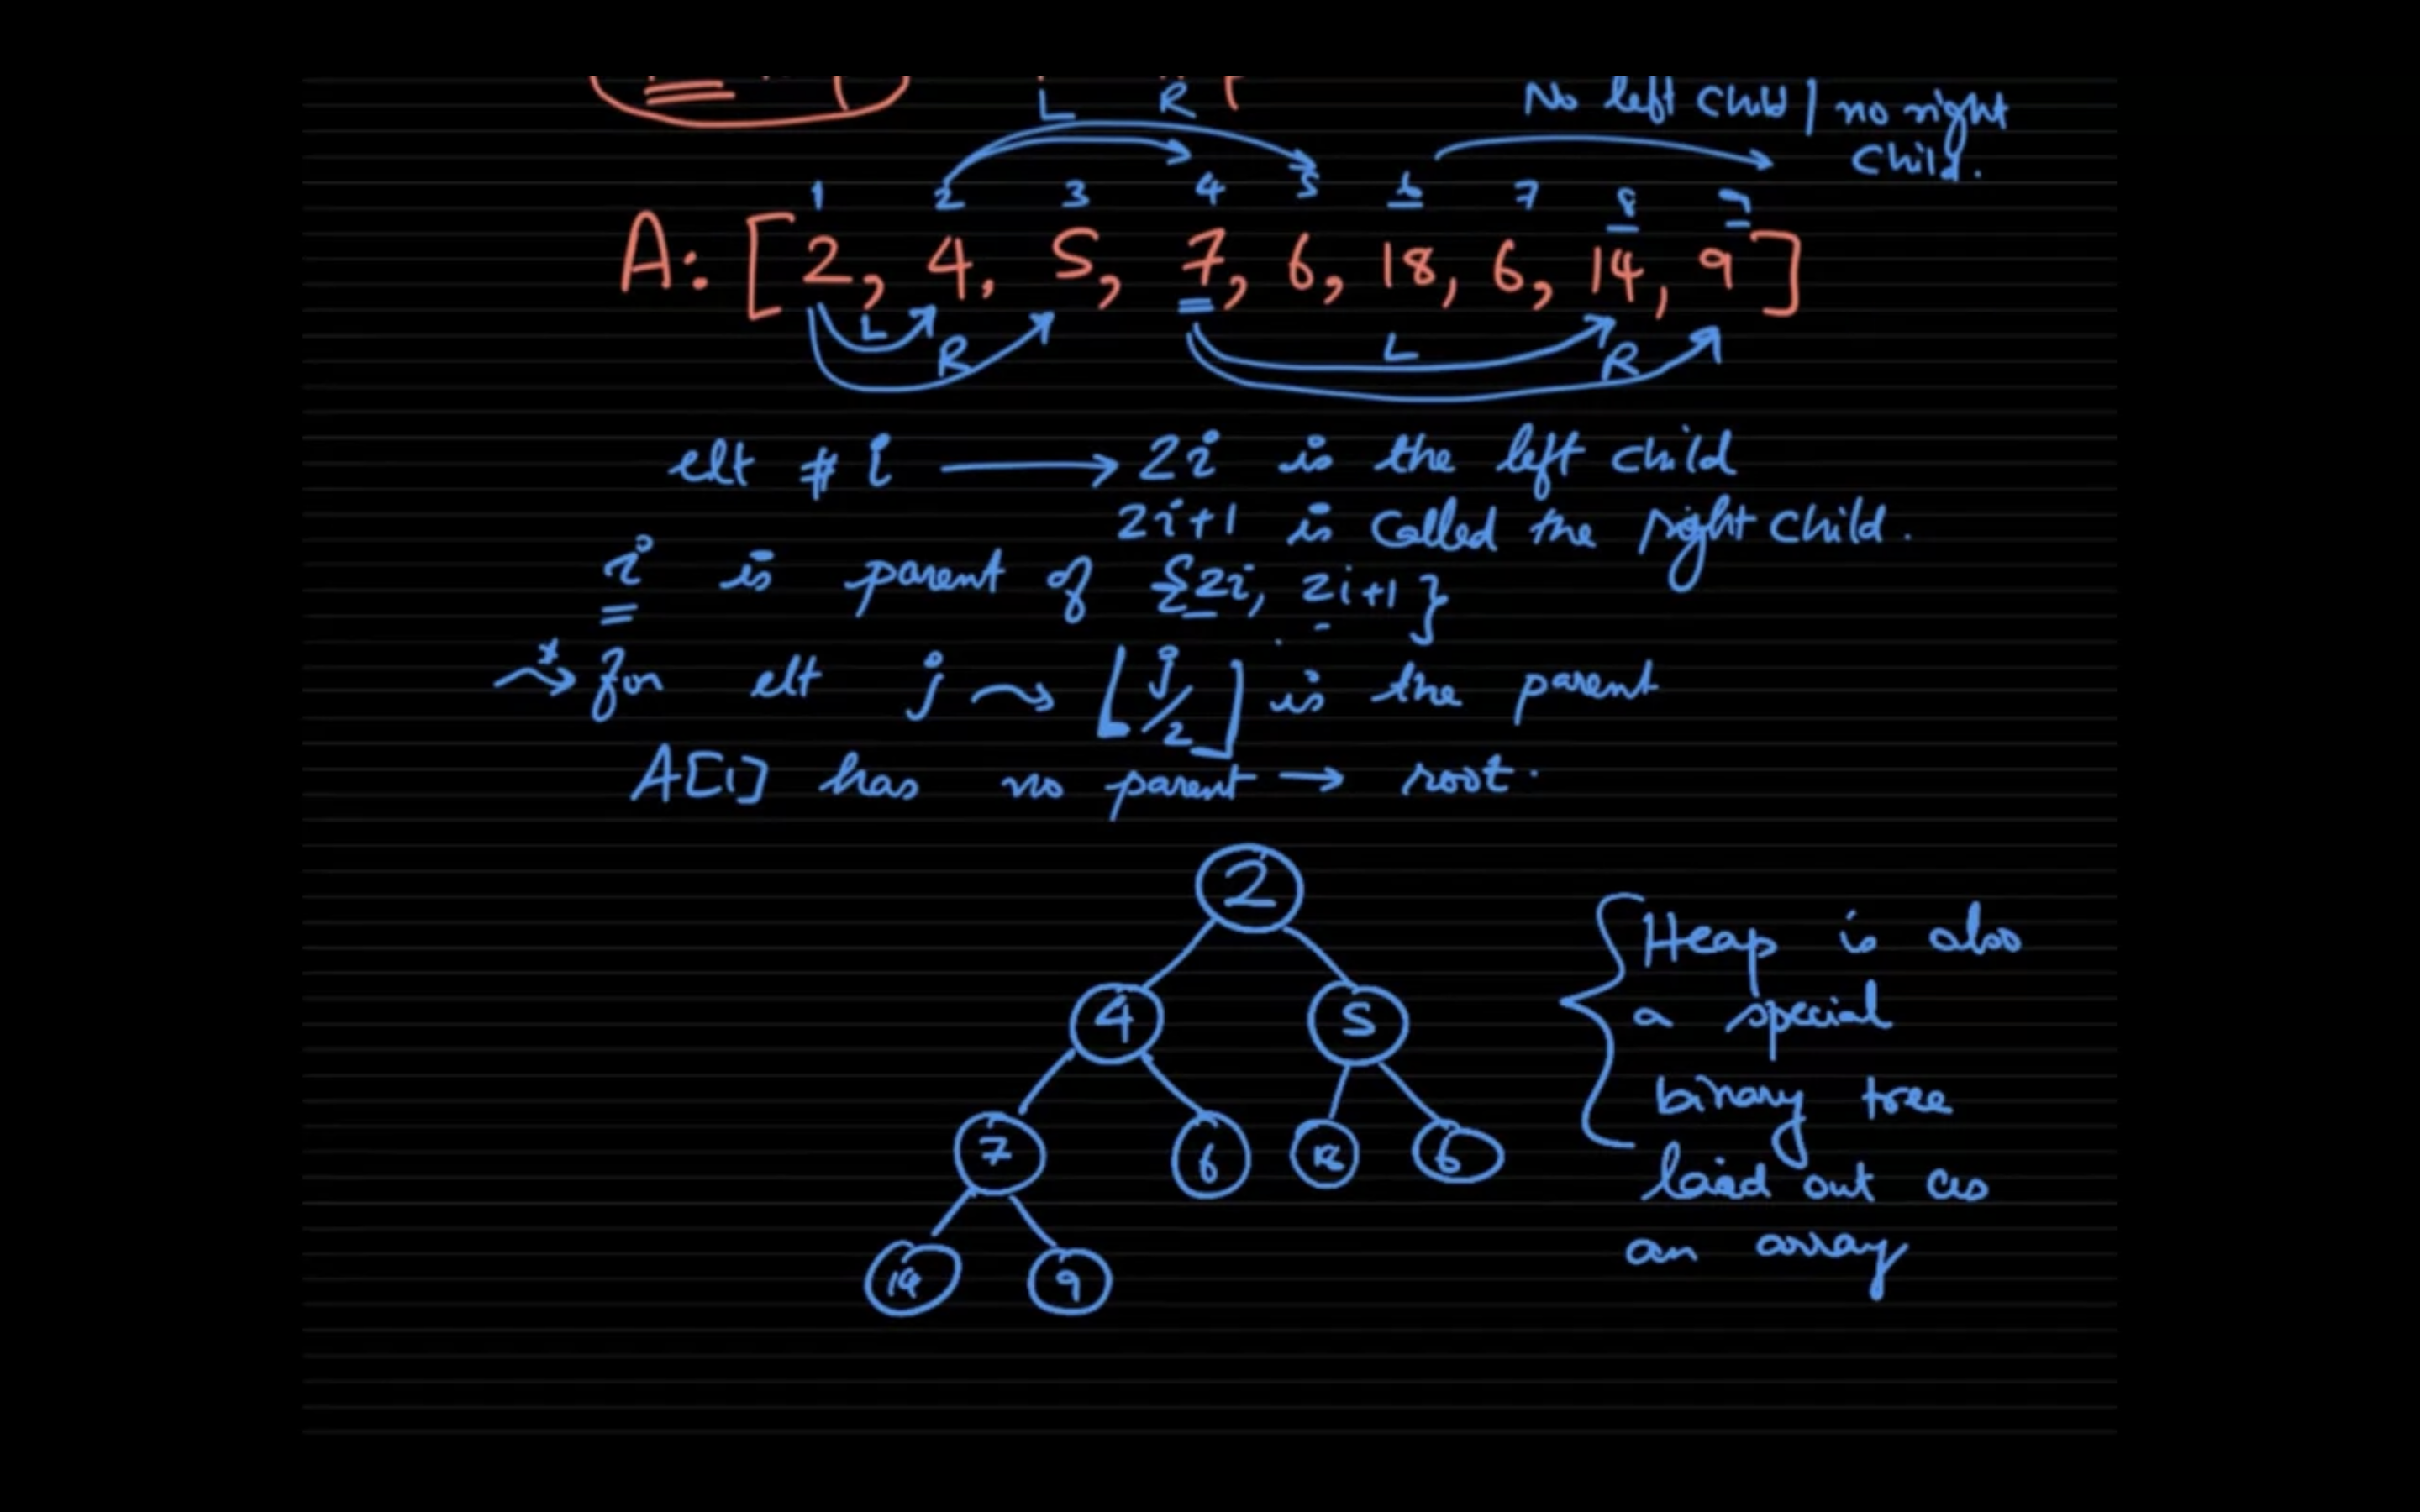 L R
No left child | no right
child.
1 2 3 4 5 6 7 8 9
A: [2, 4, 5, 7, 6, 18, 6, 14, 9]
L R L R
elt # i → 2i is the left child
2i+1 is called the right child.
i is parent of {2i, 2i+1}
* for elt j ⇝ ⌊j/2⌋ is the parent
A[1] has no parent → root.
2
4 5
7 6 18 6
14 9
Heap is also
a special
binary tree
laid out as
an array